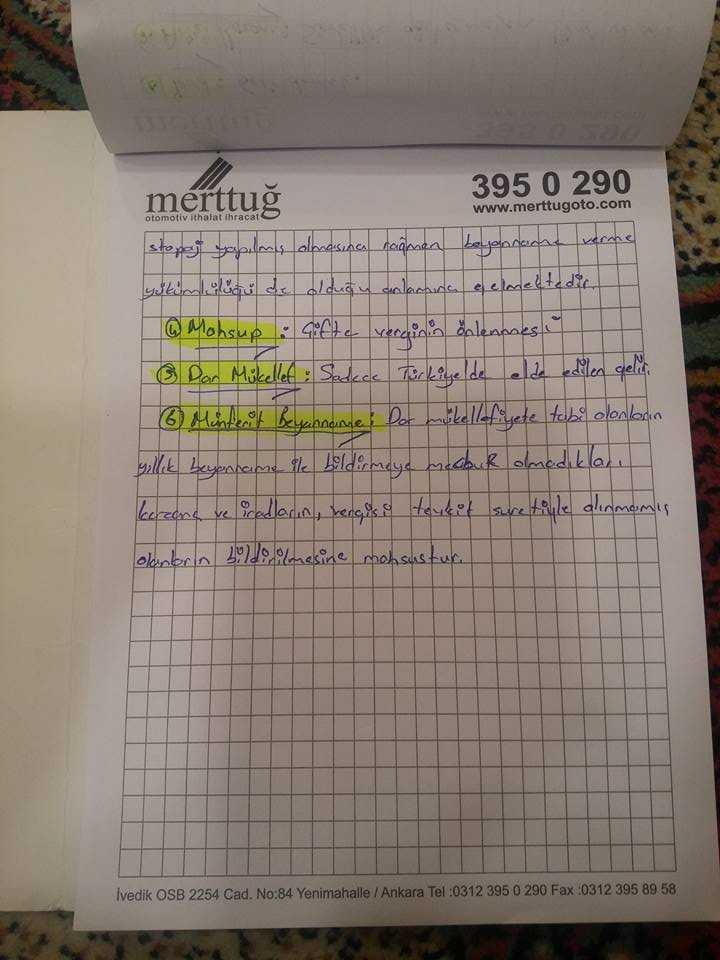 merttuğ
otomotiv ithalat ihracat
395 0 290
www.merttugoto.com
stopaj yapılmış olmasına rağmen beyanname verme
yükümlülüğü de olduğu anlamına gelmektedir.
④ Mahsup : Çifte verginin önlenmesi
⑤ Dar Mükellef : Sadece Türkiye'de elde edilen gelir.
⑥ Münferit Beyanname : Dar mükellefiyete tabi olanların
yıllık beyanname ile bildirmeye mecbur olmadıkları
kazanç ve iratların, vergisi tevkif suretiyle alınmamış
olanların bildirilmesine mahsustur.
İvedik OSB 2254 Cad. No:84 Yenimahalle / Ankara Tel :0312 395 0 290 Fax :0312 395 89 58